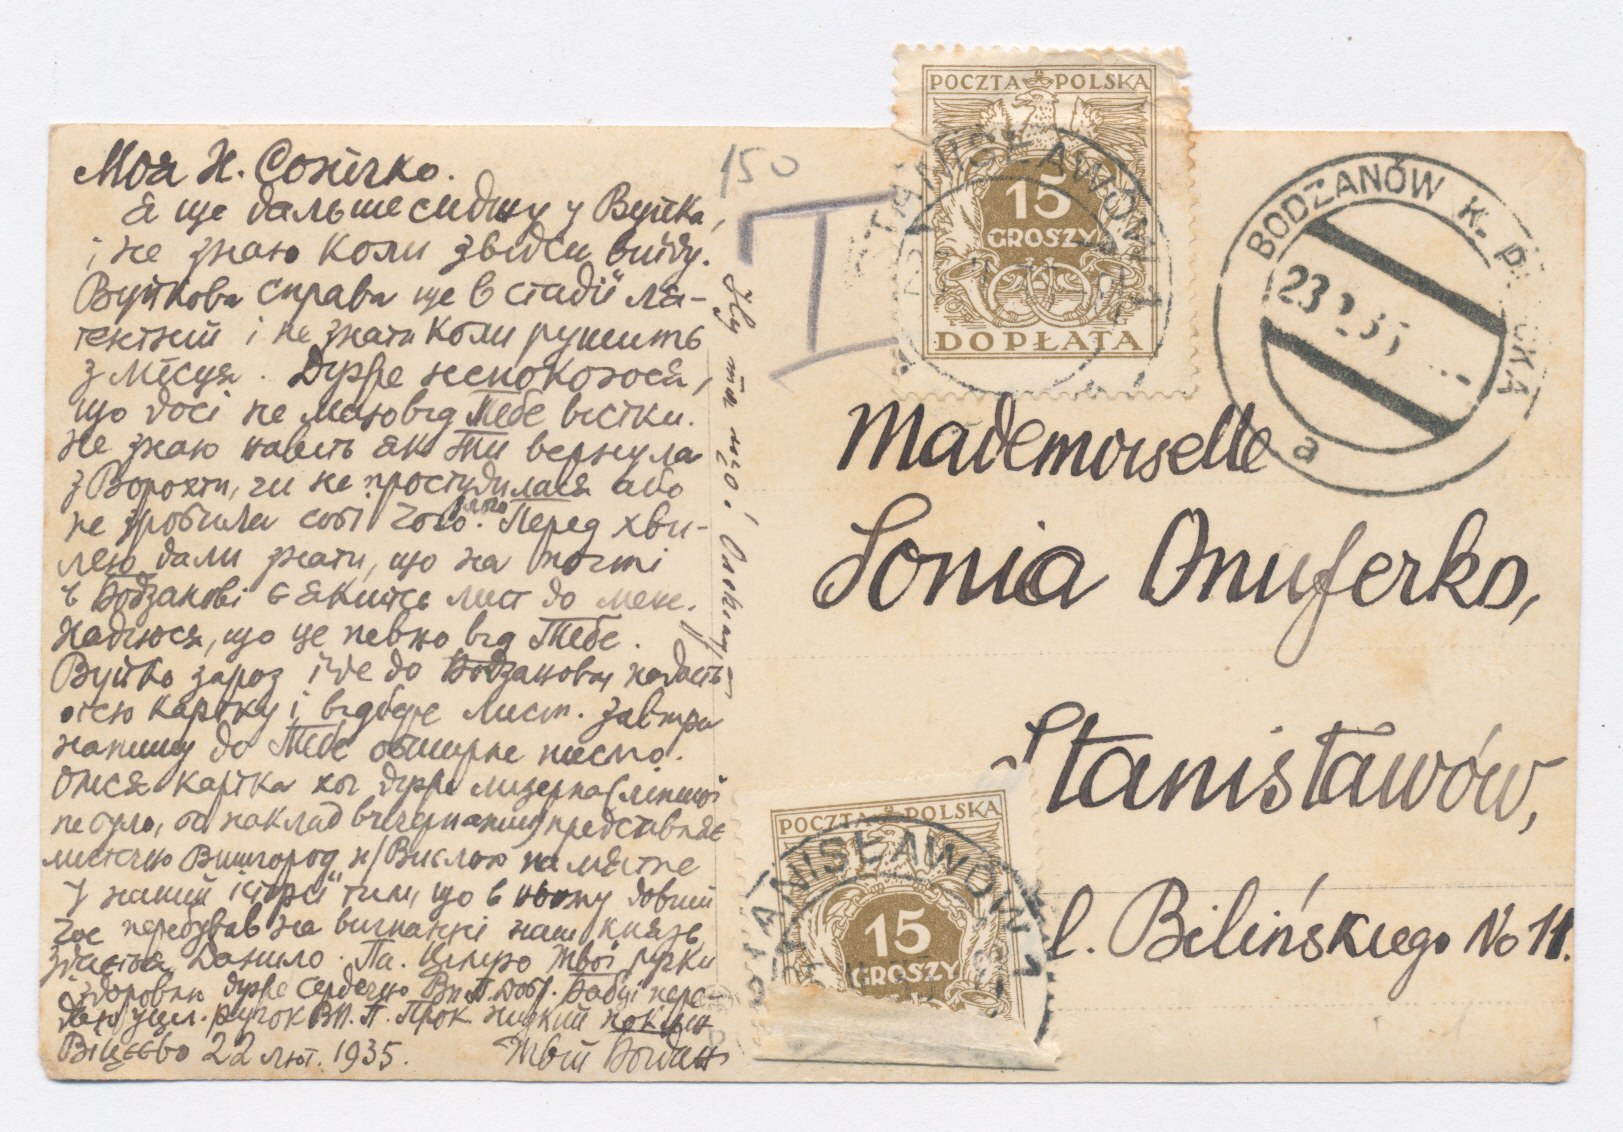 Моя Н. Сонічко.
Я ще дальше сиджу у Вуйка,
і не знаю коли звідси виїду.
Вуйкова справа ще в стадії ля-
тентній і не знати коли рушить
з місця. Дуже неспокоюся,
що досі не маю від Тебе вістки.
Не знаю навіть як Ти вернула
з Ворохти, чи не простудилася або
не зробила собі чого злого. Перед хви-
лею дали знати, що на почті
в Бодзанові є якийсь лист до мене.
Надіюся, що це певно від Тебе.
Вуйко зараз їде до Бодзанова надасть
отсю картку і відбере лист. Завтра
напишу до Тебе обширне письмо.
Отся картка хоч дуже мізерна (ліпшої
не було, бо наклад вичерпаний) представляє
містечко Вишгород н/Вислою памятне
у нашій історії тим, що в ньому довший
час перебував на вигнанні наш князь
Данило. Па. Цілую Твої ручки
здоровлю дуже сердечно Вп. П. Добр. Бабці пере-
даю уцил. ручок ВП. П. Прок низький поклін
22 лют. 1935. Твій Богдан
Ну та
150
T
POCZTA POLSKA
15
GROSZY
DOPŁATA
STANISŁAWÓW 1
BODZANÓW K. PŁOCKA
23 2 35
a
Mademoiselle
Sonia Onuferko,
Stanisławów,
l. Bilińskiego No 11.
POCZTA POLSKA
15
GROSZY
STANISŁAWÓW 1